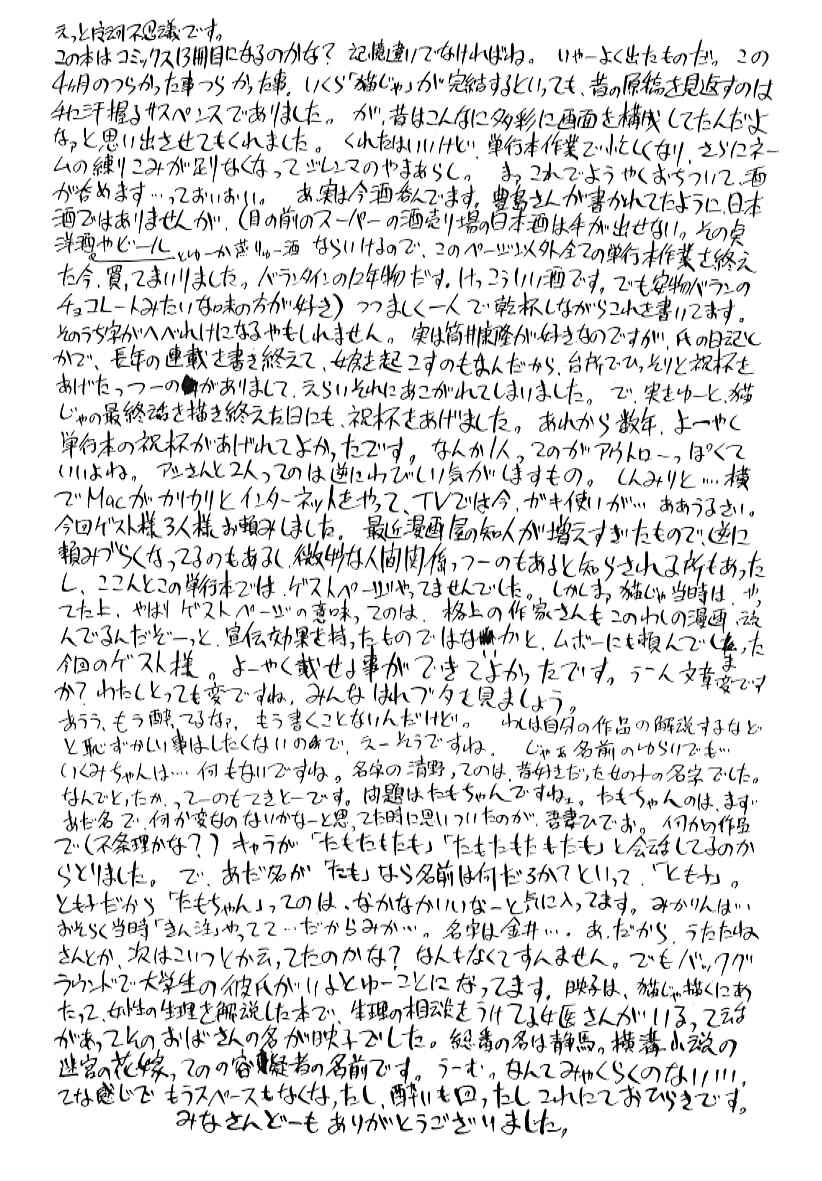 えっと唐沢不思議です。
この本はコミックス13冊目になるのかな? 記憶違いでなければね。 いやーよく出たものだ。 この
4ヶ月のつらかった事つらかった事。いくら「猫じゃ」が完結するといっても、昔の原稿を見返すのは
手に汗握るサスペンスでありました。 が、昔はこんなに多彩に画面を構成してたんだよ
なァと思い出させてもくれました。 くれたはいいけど、単行本作業で忙しくなり、さらにネー
ムの練りこみが足りなくなってジレンマのやまあらし。 まっこれでようやくおちついて、酒
が呑めます…っておいおい。 あ、実は今酒呑んでます。豊島さんが書かれてたように、日本
酒ではありませんが、(目の前のスーパーの酒売り場の日本酒は手が出せない。その点
洋酒やビールとゆーか発泡酒ならいけるので、このページ以外全ての単行本作業を終え
た今、買ってまいりました。バランタインの12年物だす。けっこういい酒です。でも安物バランの
チョコレートみたいな味の方が好き) つつましく一人で乾杯しながらこれを書いてます。
そのうち字がへべれけになるやもしれません。 実は筒井康隆が好きなのですが、氏の日記と
かで、長年の連載を書き終えて、女房を起こすのもなんだから、台所でひっそりと祝杯を
あげたっつーのがありまして、えらいそれにあこがれてしまいました。 で、実をゆーと、猫
じゃの最終話を描き終えた日にも、祝杯をあげました。 あれから数年、よーやく
単行本の祝杯があげれてよかったです。なんか1人ってのがアウトローっぽくて
いいよね。 アシさんと2人ってのは逆にわびしい気がしますもの。 しんみりと…横
でMacがカリカリとインターネットをやって、TVでは今、ガキ使いが… ああうるさい。
今回ゲスト様3人様お頼みしました。 最近漫画屋の知人が増えすぎたもので、逆に
頼みづらくなってるのもあるし、微妙な人間関係っつーのもあると知らされる所もあった
し、ここんとこの単行本では、ゲストページやってませんでした。しかしまァ猫じゃ当時は、やっ
てた上、やはりゲストページの意味ってのは、格上の作家さんもこのわしの漫画、読
んでるんだぞーっと、宣伝効果を持ったものではないかと、ムボーにも頼んでしまった
今回のゲスト様。よーやく載せる事ができてよかったです。うーん文章変です
か? わたしとっても変ですね、みんなはれブタも見ましょう。
あうう、もう酔ってるなァ、もう書くことないんだけど。 わしは自分の作品の解説するなど
と恥ずかしい事はしたくないので、えーそうですね。 じゃぁ名前のゆらいでも…
いくみちゃんは…何もないですね。名字の清野ってのは、昔好きだった女の子の名字でした。
なんでとったか、ってーのもてきとーです。問題はたもちゃんですねェ。たもちゃんのは、まず
あだ名で、何か変なのないかなーと思ってた時に思いついたのが、吾妻ひでお。何かの作品
で(不条理かな?)キャラが「たもたもたも」「たもたもたもたも」と会話してるのか
らとりました。 で、あだ名が「たも」なら名前は何だろかてといって、「とも子」。
とも子だから「たもちゃん」ってのは、なかなかいいなーと気に入ってます。みかりんは…
おそらく当時「きん注」やってて…だからみか…。名字は金井…。あ、だから、うたたね
さんとか、次はこいつとか云ってたのかな? なんもなくてすんません。でもバックグ
ラウンドで大学生の彼氏がいるとゆーことになってます。映子は、猫じゃ描くにあ
たって、女性の生理を解説した本で、生理の相談をうけてる女医さんがいるって話
があってそのおばさんの名が映子でした。総番の名は静馬。横溝小説の
迷宮の花嫁ってのの容疑者の名前です。うーむ。なんてみゃくらくのない!!!、
てな感じでもうスペースもなくなったし、酔いも回ったしこれにておひらきです。
みなさんどーもありがとうございました。